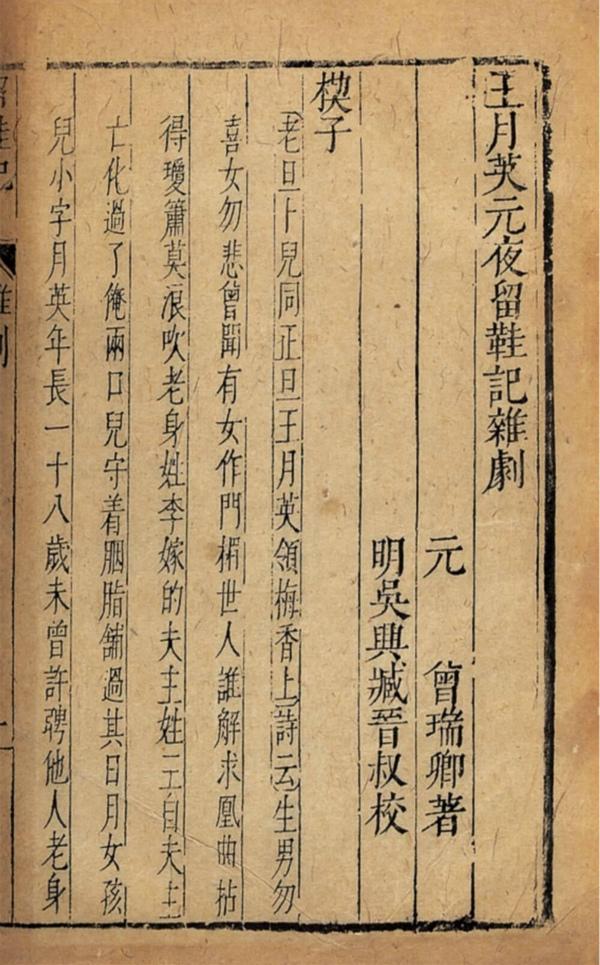 王月英元夜留鞋記雜劇
元　曾瑞卿著
明吳興臧晉叔校
楔子
老旦卜兒同正旦王月英領梅香上詩云生男勿
喜女勿悲曾聞有女作門楣世人誰解求凰曲拈
得瓊簫莫浪吹老身姓李嫁的夫主姓王自夫主
亡化過了俺兩口兒守着胭脂舖過其日月女孩
兒小字月英年長一十八歲未曾許聘他人老身